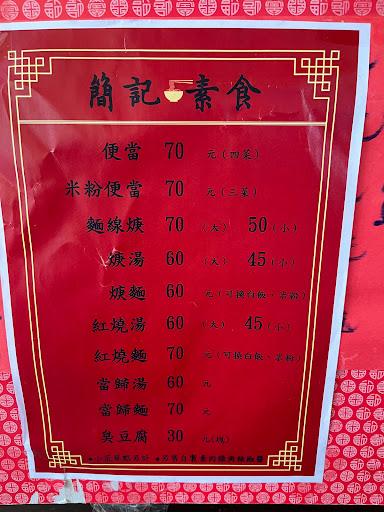 簡記素食
便當 70 元(四菜)
米粉便當 70 元(三菜)
麵線焿 70 (大) 50 (小)
焿湯 60 (大) 45 (小)
焿麵 60 元(可換白飯、米粉)
紅燒湯 60 (大) 45 (小)
紅燒麵 70 元(可換白飯、米粉)
當歸湯 60 元
當歸麵 70 元
臭豆腐 30 元(塊)